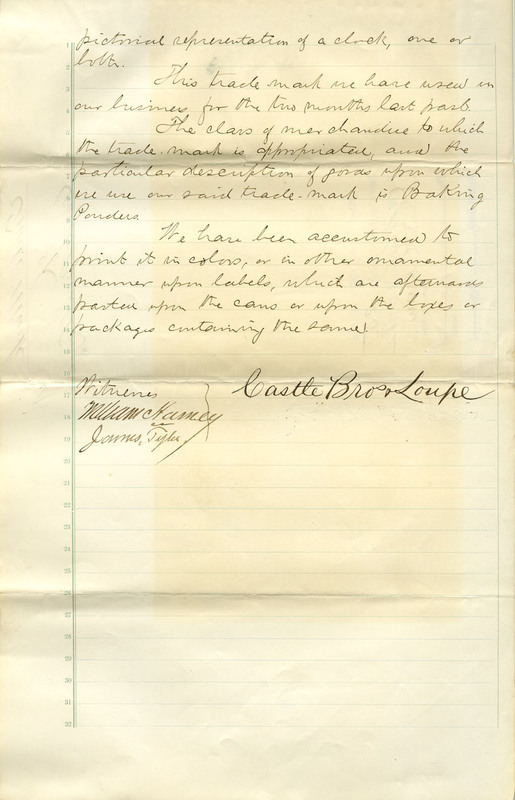 pictorial representation of a clock, one or
both.
This trade-mark we have used in
our business for the two months last past.
The class of merchandise to which
the trade-mark is appropriated, and the
particular description of goods upon which
we use our said trade-mark is Baking
Powders
We have been accustomed to
print it in colors, or in other ornamental
manner upon labels, which are afterwards
pasted upon the cans or upon the boxes or
packages containing the same.
Witnesses
Castle Bros & Loupe
James Tyler
1
2
3
4
5
6
7
8
9
10
11
12
13
14
15
16
17
18
19
20
21
22
23
24
25
26
27
28
29
30
31
32